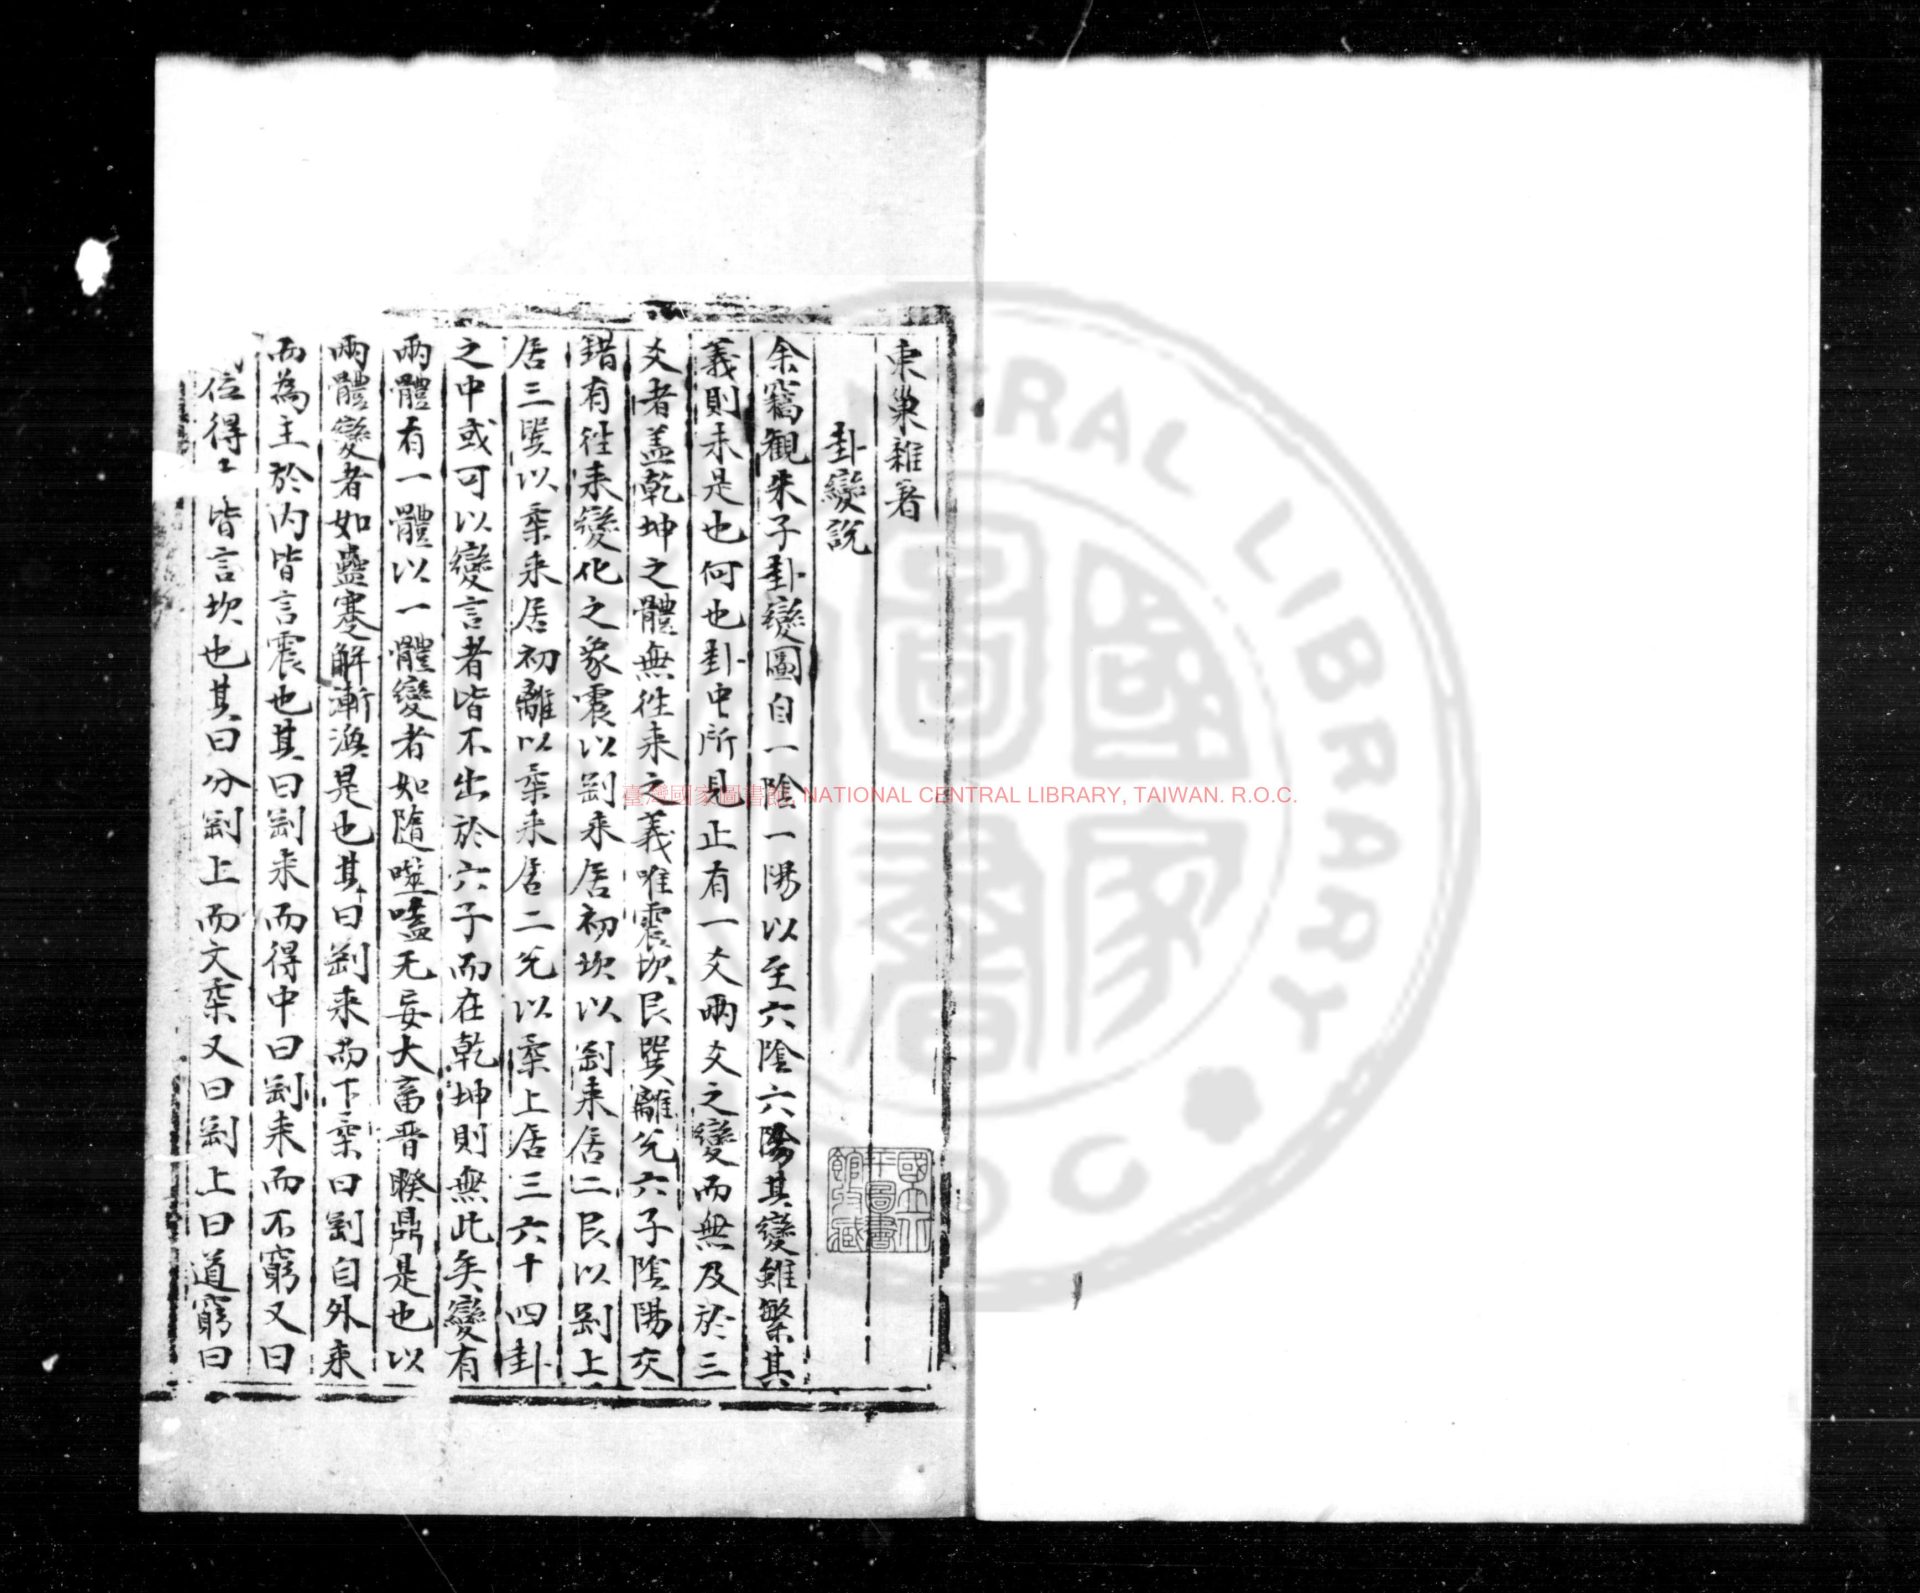 東巢雜著
卦變說
余竊觀朱子卦變圖自一陰一陽以至六陰六陽其變雖繁其
義則未是也何也卦中所見止有一爻兩爻之變而無及於三
爻者盖乾坤之體無往来之義唯震坎艮巽離兊六子陰陽交
錯有往来變化之象震以剛来居初坎以剛来居二艮以剛上
居三巽以柔来居初離以柔来居二兊以柔上居三六十四卦
之中或可以變言者皆不出於六子而在乾坤則無此矣變有
兩體有一體以一體變者如隨噬嗑无妄大畜晋睽鼎是也以
兩體變者如蠱蹇解漸渙是也其曰剛来而下柔曰剛自外来
而為主於内皆言震也其曰剛来而得中曰剛来而不窮又曰
位得 皆言坎也其曰分剛上而文柔又曰剛上曰道窮曰
國立北
平圖書
館收藏
臺灣國家圖書館, NATIONAL CENTRAL LIBRARY, TAIWAN. R.O.C.